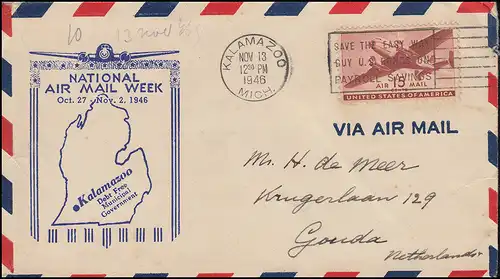 10 13 nov
NATIONAL
AIR MAIL WEEK
Oct. 27 - Nov. 2, 1946
Kalamazoo
Debt Free
Municipal
Government
KALAMAZOO
NOV 13
12 PM
1946
MICH.
SAVE THE EASY WAY
BUY U.S. BONDS
PAYROLL SAVINGS
15
AIR MAIL
UNITED STATES OF AMERICA
VIA AIR MAIL
Mr. H. de Meer
Krugerlaan 129
Gouda
Netherlands